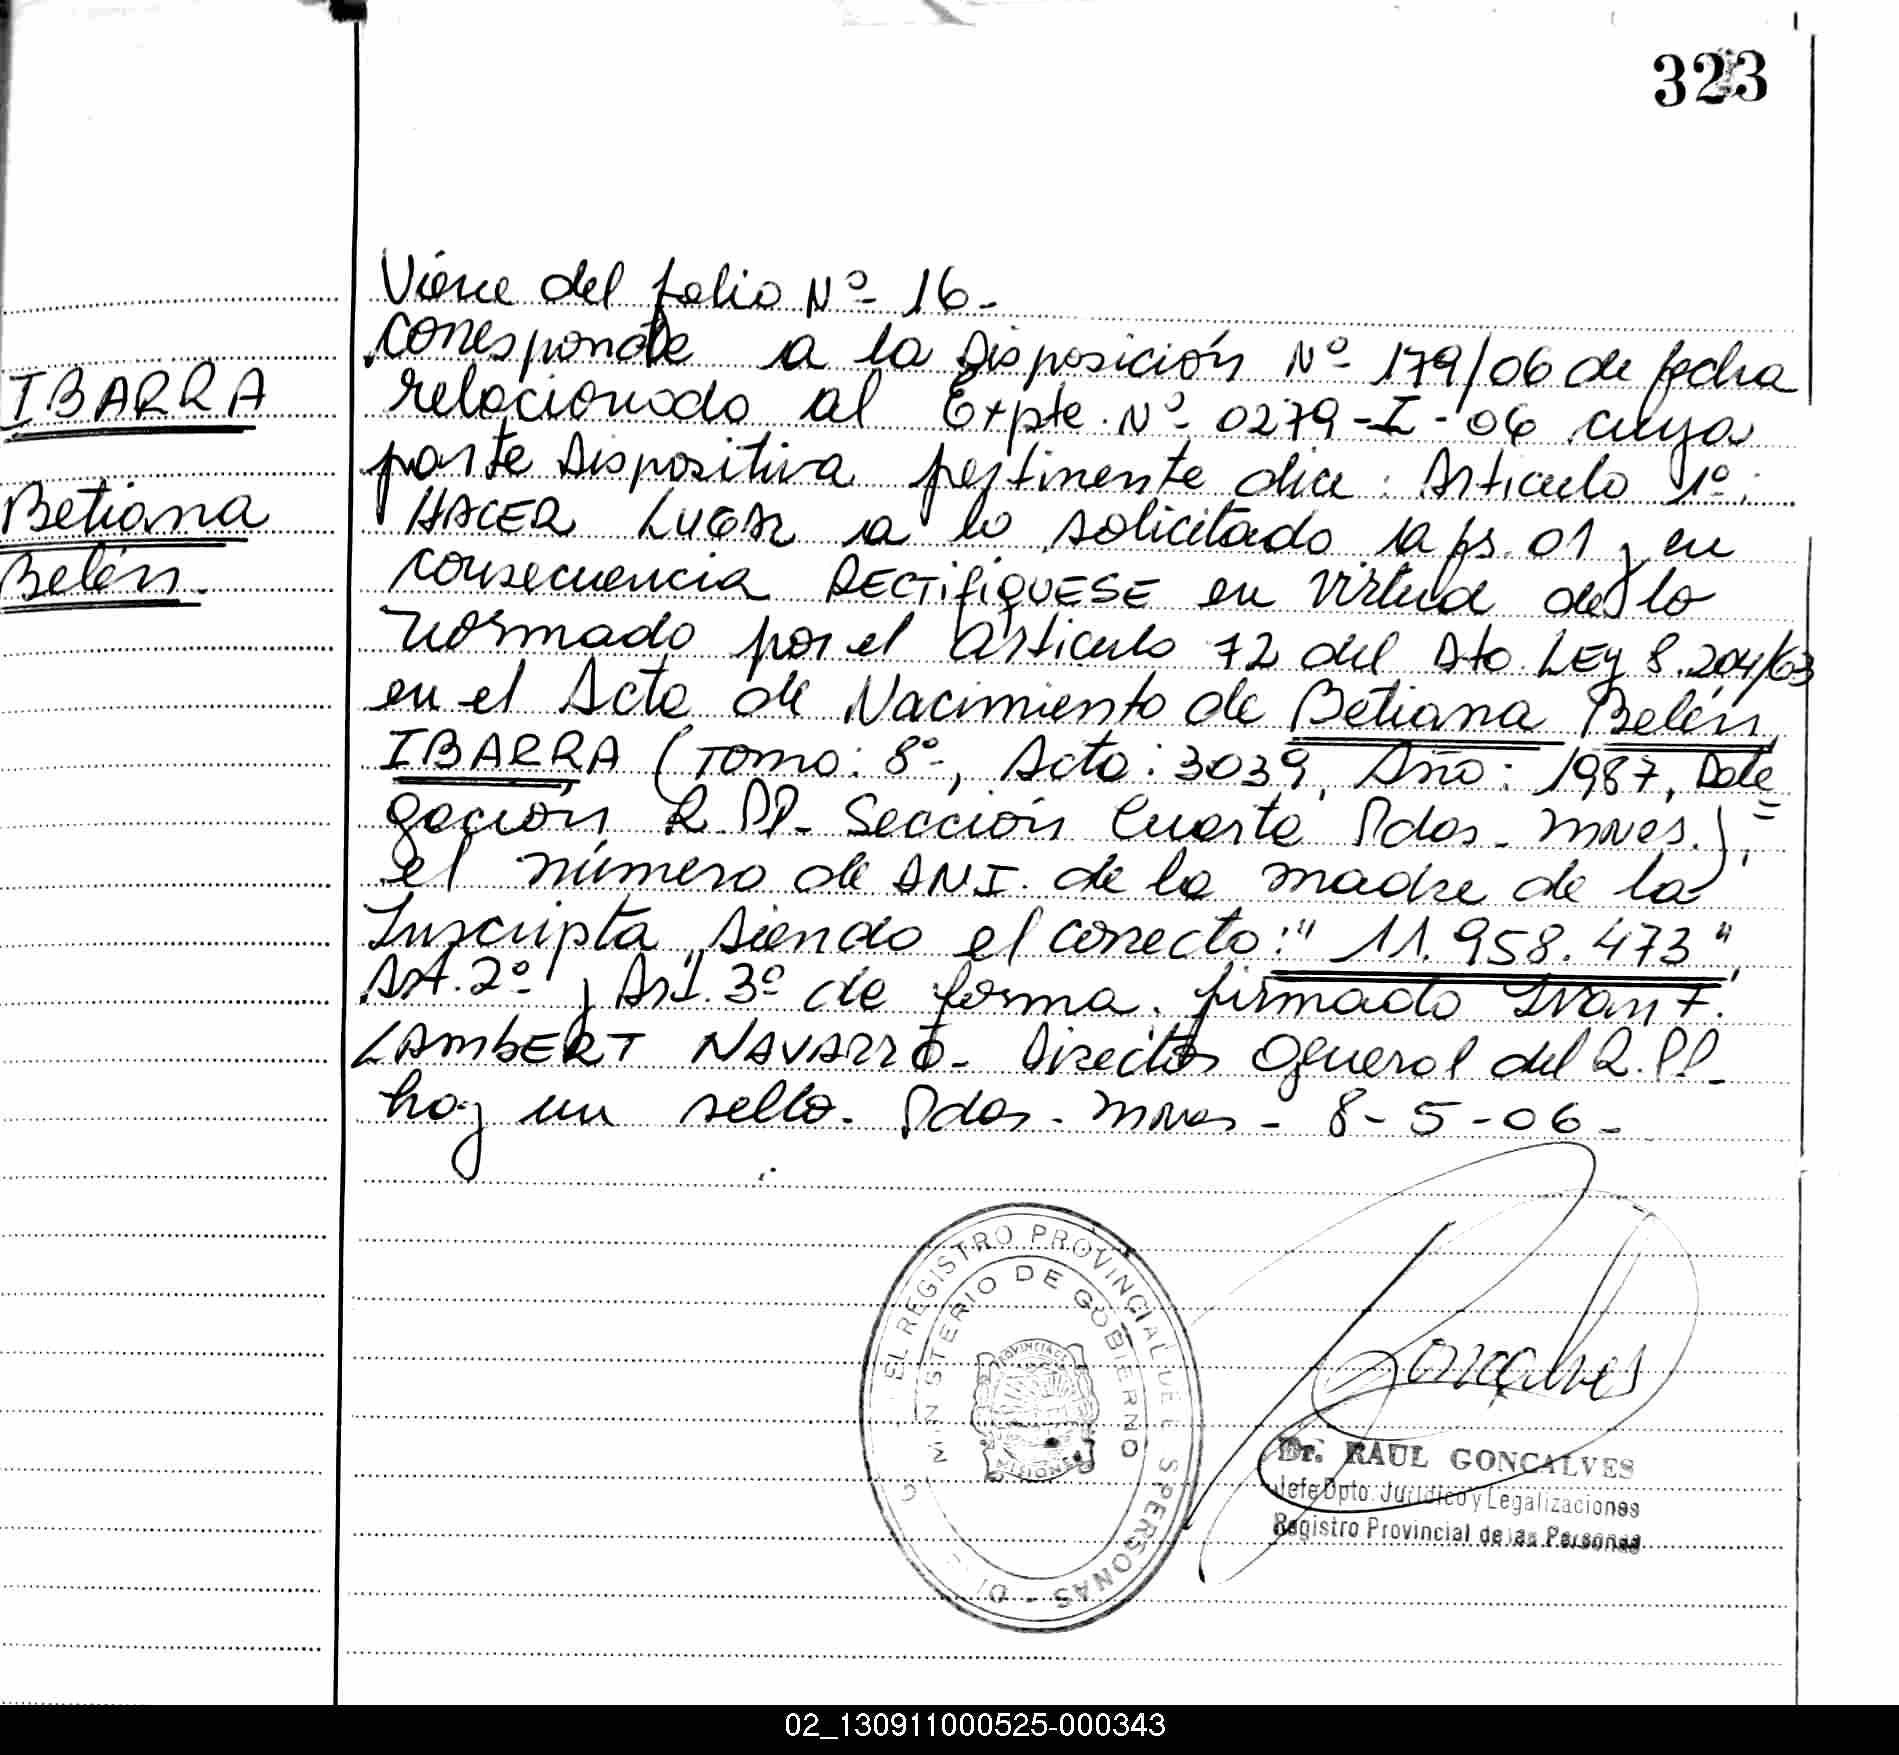 323
Viene del folio Nº 16.
corresponde a la Disposición Nº 179/06 de fecha
IBARRA
relacionado al Expte. Nº 0279-I-06 cuya
parte Dispositiva pertinente dice: Articulo 1º:
Betiana
HACER LUGAR a lo solicitado a fs. 01 y en
Belén.
consecuencia RECTIFIQUESE en virtud de lo
normado por el articulo 72 del Dto Ley 8.204/63
en el Acta de Nacimiento de Betiana Belén
IBARRA (Tomo: 8º, Acta: 3039, Año: 1987, Dele
gación R.PP. Sección Cuarta Pdas. Mnes.),
el número de DNI. de la madre de la
Inscripta, siendo el correcto: "11.958.473",
Art. 2º y Art. 3º de forma. firmado Ivan F.
LAMBERT NAVARRO- Director General del R.PP.
hay un sello. Pdas. Mnes - 8-5-06-
EL REGISTRO PROVINCIAL DE PERSONAS
MINISTERIO DE GOBIERNO
PROVINCIA DE
MISIONES
Goncalves
Dr. RAUL GONCALVES
Jefe Dpto. Jurídico y Legalizaciones
Registro Provincial de las Personas
02_130911000525-000343